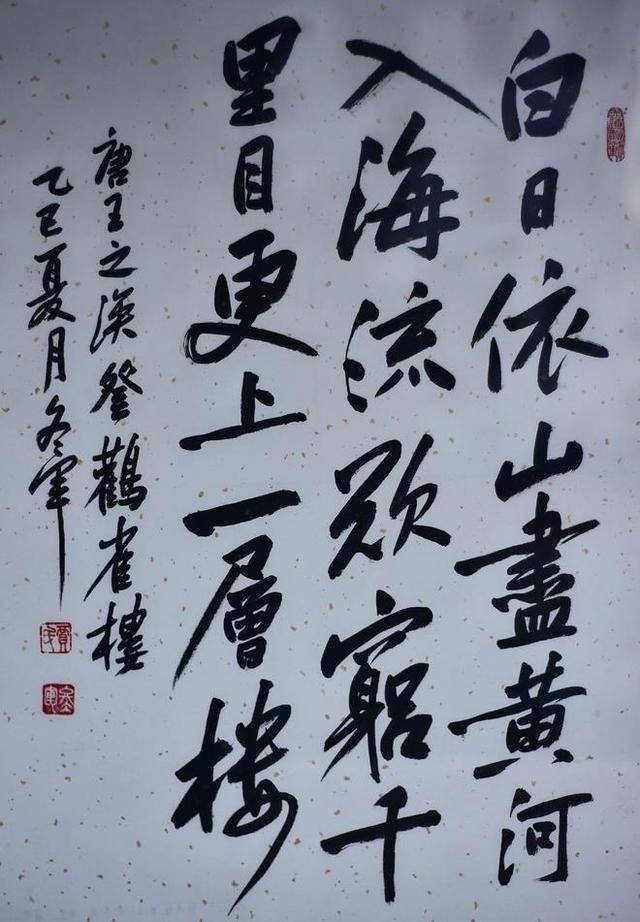 白日依山盡黄河
入海流欲窮千
里目更上一層楼
唐王之渙登鸛雀樓
乙巳夏月冬軍